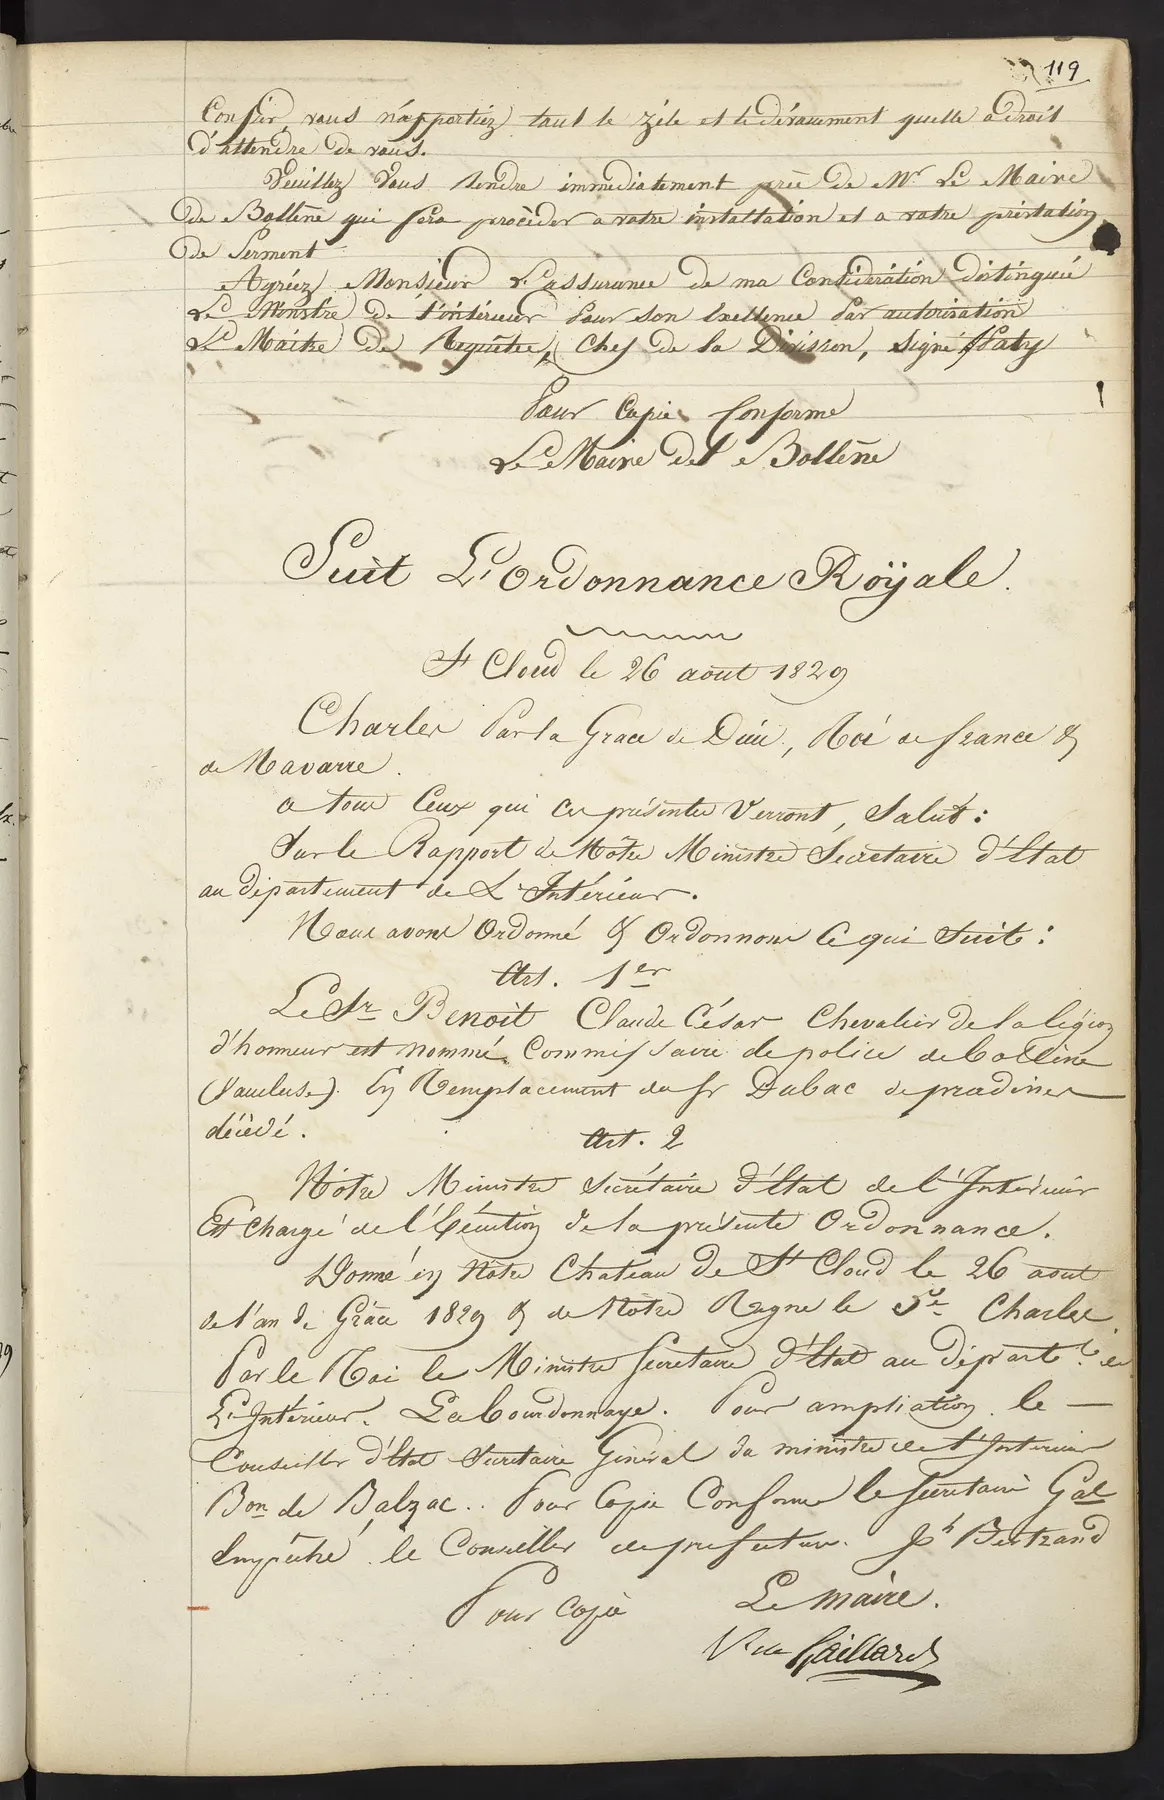 119
Confier, vous n'apportiez tout le zèle et le dévouement quelle a droit
d'attendre de vous.
Veuillez Vous Rendre immediatement près de Mr Le Maire
de Bollène qui fera procéder a votre installation et a votre prestation
de Serment
Agréez Monsieur L'assurance de ma Considération distinguée
Le Ministre de l'intérieur Pour son Exellence Par autorisation
Le Maitre de Requêtre, Chef de la Division, Signé
Pour Copie Conforme
Le Maire de Bollène
Suit L'Ordonnance Röyale.
St Cloud le 26 aout 1829
Charles Par la Grace de Dieu, Roi de france &
de Navarre.
a tous Ceux qui ces présentes Verront, Salut:
Sur le Rapport de Nôtre Ministre Secretaire d'État
au département de L'Intérieur.
Nous avons Ordonné & Ordonnons Ce qui Suit:
Art. 1er
Le Sr Benoit Claude César Chevalier de la légion
d'honneur est nommé Commissaire de police de bollène
(Vaucluse). En Remplacement du Sr Dubac de pradines
décédé.
Art. 2
Nôtre Ministre Secrétaire d'État de l'Intérieur
Est Chargé de l'Exécution de la présente Ordonnance.
Donné en Notre Chateau de St Cloud le 26 aout
de l'an de Grâce 1829 & de Notre Regne le 5me Charles.
Par le Roi le Ministre Secretaire d'État au départt de
L'Intérieur. Labourdonnaye. Pour ampliation le —
Conseiller d'État Secretaire Général du ministre de l'Interieur
Bon de Balzac.. Pour Copie Conforme le Secretaire Gal
Empêché, le Conseiller de prefecture. Jh Bertrand
Pour Copie Le maire.
Gaillard